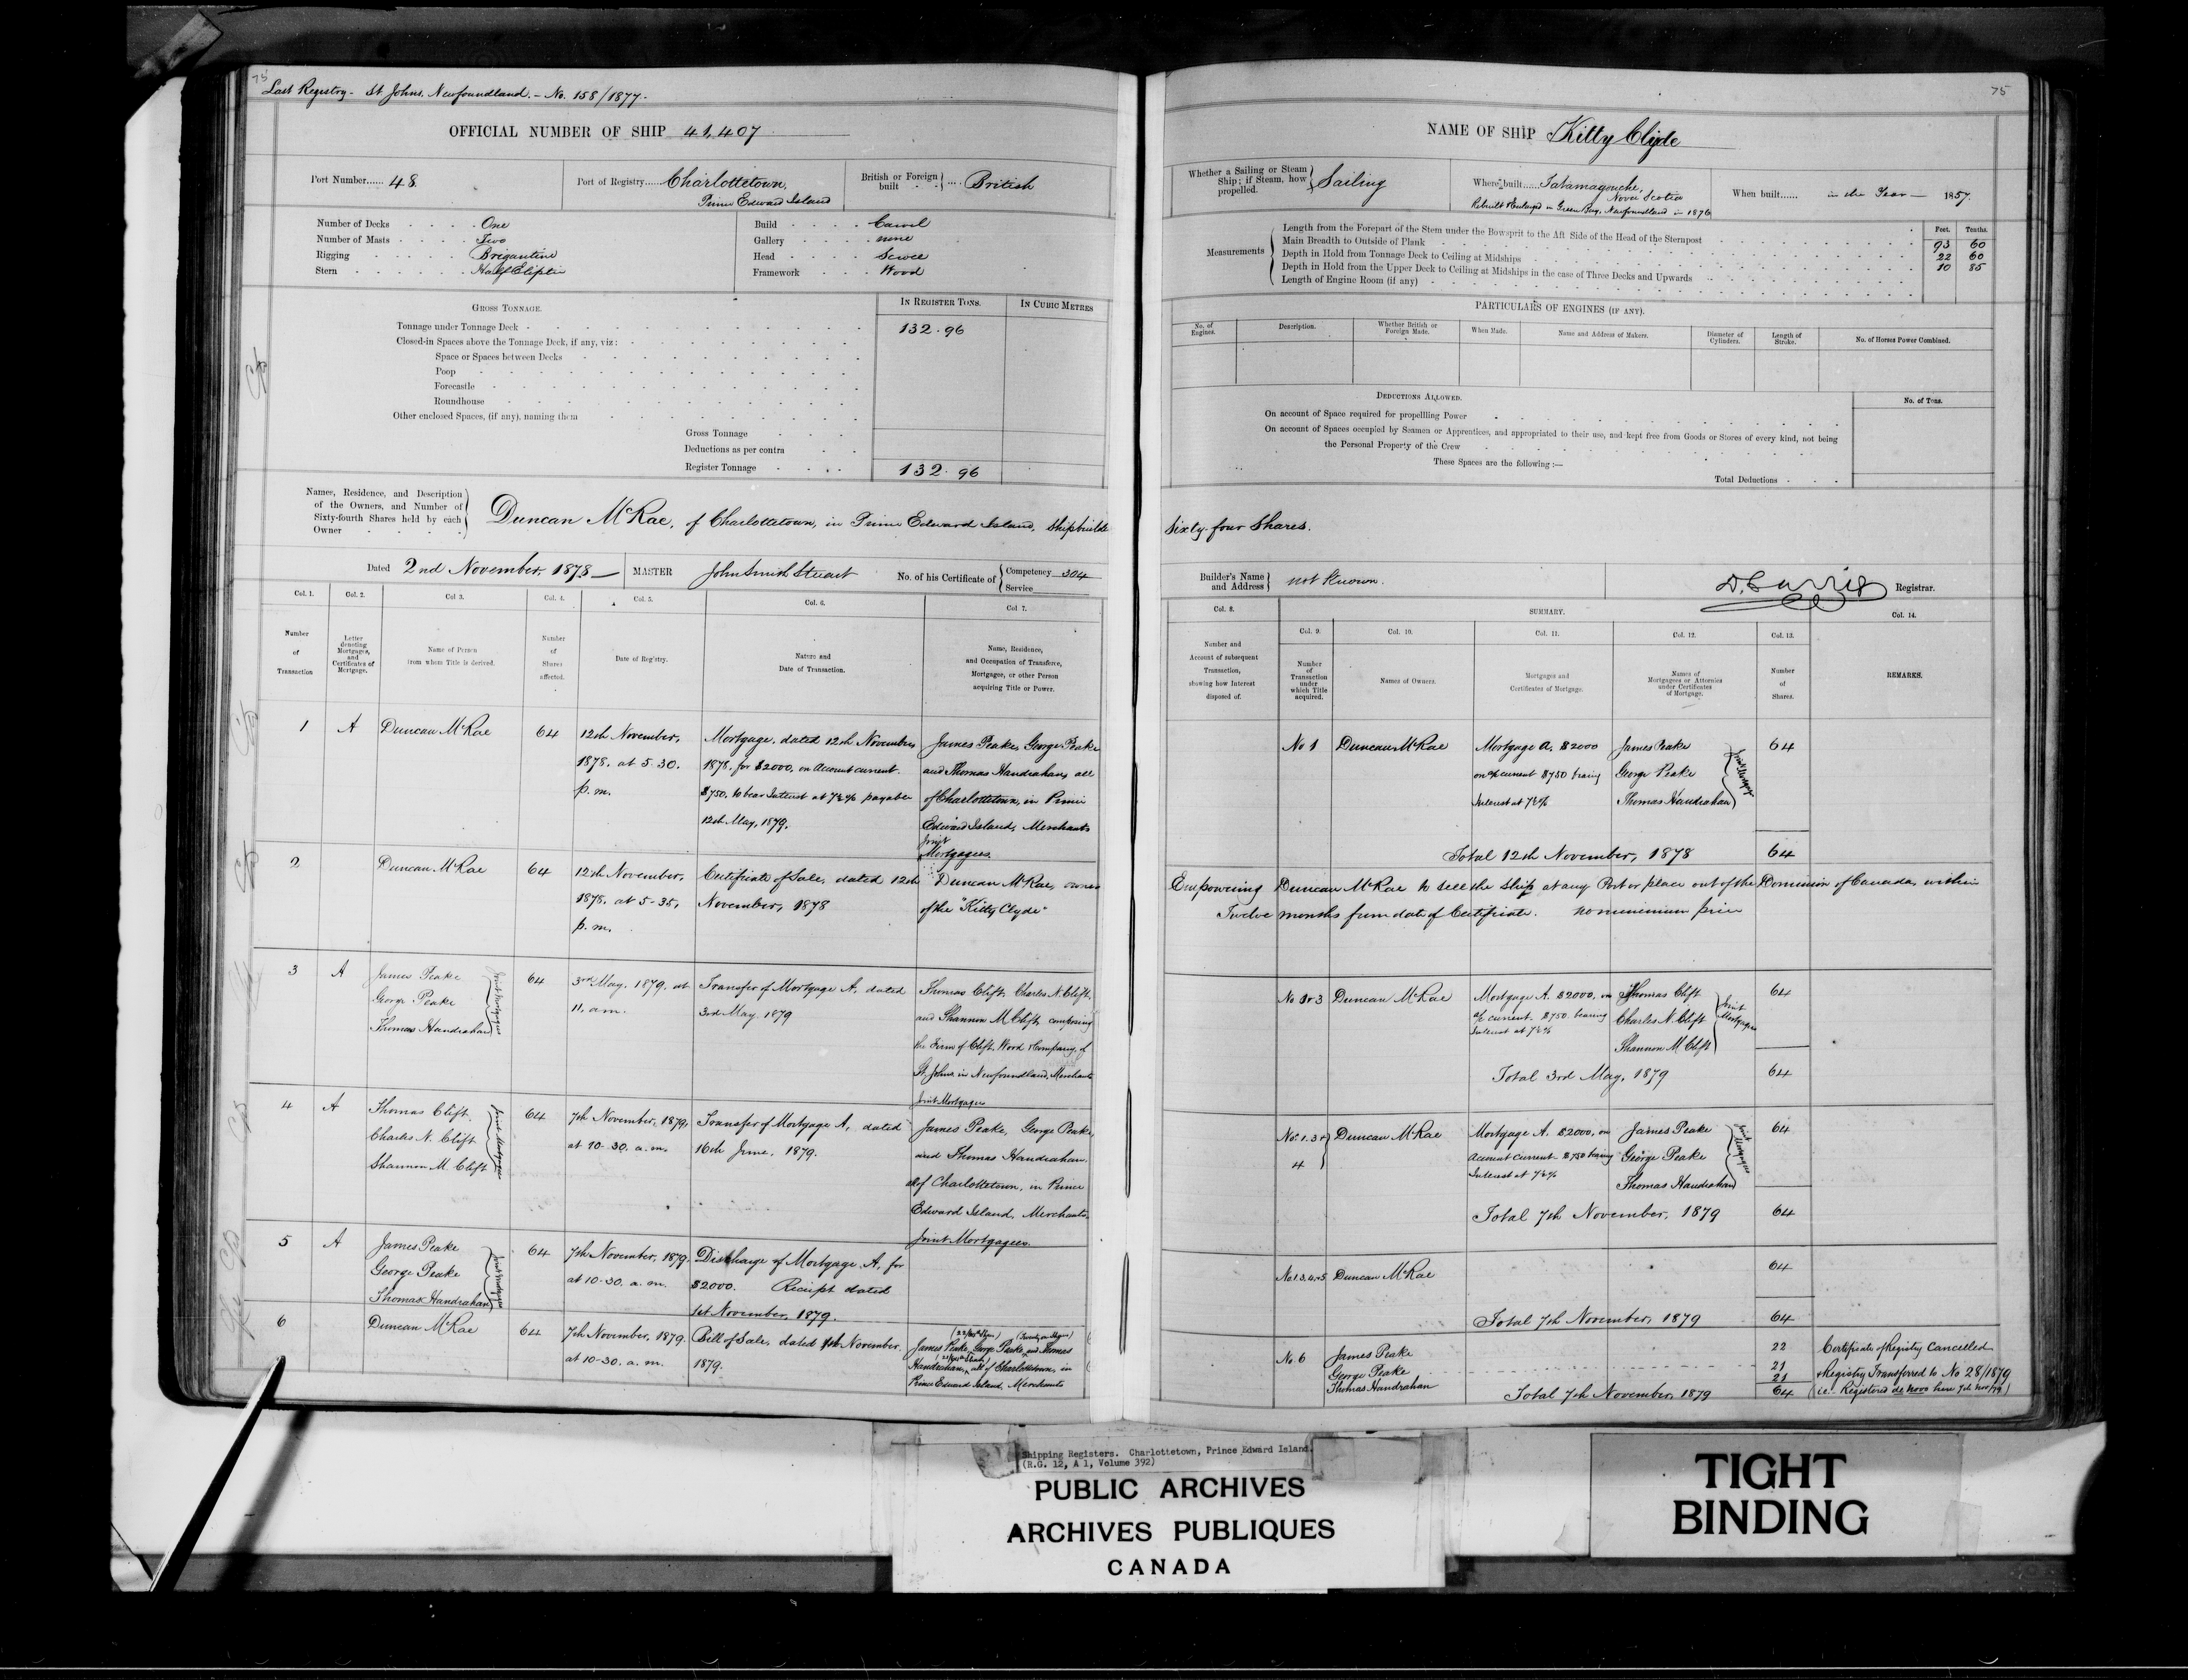 75
Last Registry - St Johns, Newfoundland. - No. 158/1877 -
OFFICIAL NUMBER OF SHIP 41,407
Port Number...... 48.
Port of Registry..... Charlottetown,
Prince Edward Island
British or Foreign built .... British
Number of Decks One
Number of Masts Two
Rigging Brigantine
Stern Half Eliptic
Build Carvel
Gallery none
Head Scroll
Framework Wood
GROSS TONNAGE.
IN REGISTER TONS.
IN CUBIC METRES
Tonnage under Tonnage Deck 132.96
Closed-in Spaces above the Tonnage Deck, if any, viz:
Space or Spaces between Decks
Poop
Forecastle
Roundhouse
Other enclosed Spaces, (if any), naming them
Gross Tonnage
Deductions as per contra
Register Tonnage 132.96
Names, Residence, and Description
of the Owners, and Number of
Sixty-fourth Shares held by each
Owner
Duncan McRae, of Charlottetown, in Prince Edward Island, Shipbuilder
Dated 2nd November, 1878 MASTER John Smith Stewart No. of his Certificate of Competency 304
Service
Col. 1. Col. 2. Col 3. Col. 4. Col. 5. Col. 6. Col 7.
Number of Transaction
Letter denoting Mortgages, and Certificates of Mortgage.
Name of Person from whom Title is derived.
Number of Shares affected.
Date of Registry.
Nature and Date of Transaction.
Name, Residence, and Occupation of Transferee, Mortgagee, or other Person acquiring Title or Power.
1 A Duncan McRae 64
12th November,
1878, at 5-30.
p.m.
Mortgage, dated 12th November
1878, for $2000, on Account current
$750, to bear Interest at 7½% payable
12th May, 1879.
James Peake, George Peake
and Thomas Handrahan, all
of Charlottetown, in Prince
Edward Island, Merchants
Joint
Mortgagees.
2 Duncan McRae 64
12th November,
1878, at 5-35,
p.m.
Certificate of Sale, dated 12th
November, 1878
Duncan McRae, owner
of the "Kitty Clyde"
3 A James Peake
George Peake
Thomas Handrahan
Joint Mortgagees
64
3rd May, 1879, at
11, a.m.
Transfer of Mortgage A, dated
3rd May 1879
Thomas Clift, Charles N. Clift,
and Shannon M Clift, composing
the Firm of Clift, Wood & Company, of
St. Johns in Newfoundland, Merchants
Joint Mortgagees
4 A Thomas Clift
Charles N. Clift
Shannon M. Clift
Joint Mortgagees
64
7th November, 1879,
at 10-30. a.m.
Transfer of Mortgage A, dated
16th June, 1879.
James Peake, George Peake,
and Thomas Handrahan.
all of Charlottetown, in Prince
Edward Island, Merchants.
Joint Mortgagees.
5 A James Peake
George Peake
Thomas Handrahan
Joint Mortgagees
64
7th November, 1879.
at 10-30. a.m.
Discharge of Mortgage A, for
$2000. Receipt dated
1st November, 1879.
6 Duncan McRae 64
7th November, 1879.
at 10-30. a.m.
Bill of Sale, dated 7th November.
1879.
James Peake, George Peake, and Thomas
Handrahan, all of Charlottetown, in
Prince Edward Island, Merchants
75
NAME OF SHIP Kitty Clyde
Whether a Sailing or Steam Ship; if Steam, how propelled. Sailing
Where built..... Tatamagouche,
Nova Scotia
Rebuilt & Enlarged in Green Bay, Newfoundland in 1876
When built...... in the Year - 1857.
Measurements
Feet. Tenths.
Length from the Forepart of the Stem under the Bowsprit to the Aft Side of the Head of the Sternpost 93 60
Main Breadth to Outside of Plank 22 60
Depth in Hold from Tonnage Deck to Ceiling at Midships 10 85
Depth in Hold from the Upper Deck to Ceiling at Midships in the case of Three Decks and Upwards
Length of Engine Room (if any)
PARTICULARS OF ENGINES (IF ANY).
No. of Engines.
Description.
Whether British or Foreign Made.
When Made.
Name and Address of Makers.
Diameter of Cylinders.
Length of Stroke.
No. of Horses Power Combined.
DEDUCTIONS ALLOWED.
No. of Tons.
On account of Space required for propelling Power
On account of Spaces occupied by Seamen or Apprentices, and appropriated to their use, and kept free from Goods or Stores of every kind, not being
the Personal Property of the Crew
These Spaces are the following :—
Total Deductions
Sixty-four Shares.
Builder's Name and Address not Known.
Registrar.
Col. 8. SUMMARY. Col. 14.
Col. 9. Col. 10. Col. 11. Col. 12. Col. 13.
Number and Account of subsequent Transaction, showing how Interest disposed of.
Number of Transaction under which Title acquired.
Names of Owners.
Mortgages and Certificates of Mortgage.
Names of Mortgagees or Attornies under Certificates of Mortgage.
Number of Shares.
REMARKS.
No 1 Duncan McRae
Mortgage A, $2000
on a/c current $750 bearing
Interest at 7½%
James Peake
George Peake
Thomas Handrahan
Joint Mortgagees
64
Total 12th November, 1878 64
Empowering Duncan McRae to sell the Ship at any Port or place out of the Dominion of Canada, within
Twelve months from date of Certificate. No minimum price
No 1 & 3 Duncan McRae
Mortgage A. $2000, on
a/c current $750 bearing
Interest at 7½%
Thomas Clift
Charles N. Clift
Shannon M Clift
Joint Mortgagees
64
Total 3rd May, 1879 64
No. 1. 3 &
4
Duncan McRae
Mortgage A. $2000, on
Account current $750 bearing
Interest at 7½%
James Peake
George Peake
Thomas Handrahan
Joint Mortgagees
64
Total 7th November, 1879 64
No 1. 3. 4. & 5 Duncan McRae 64
Total 7th November, 1879 64
No 6 James Peake 22
George Peake 21
Thomas Handrahan 21
Total 7th November, 1879 64
Certificate of Registry Cancelled
& Registry Transferred to No 28/1879
(i.e. Registered de novo here 7th Nov/79)
Shipping Registers. Charlottetown, Prince Edward Island.
(R.G. 12, A 1, Volume 392)
PUBLIC ARCHIVES
ARCHIVES PUBLIQUES
CANADA
TIGHT
BINDING